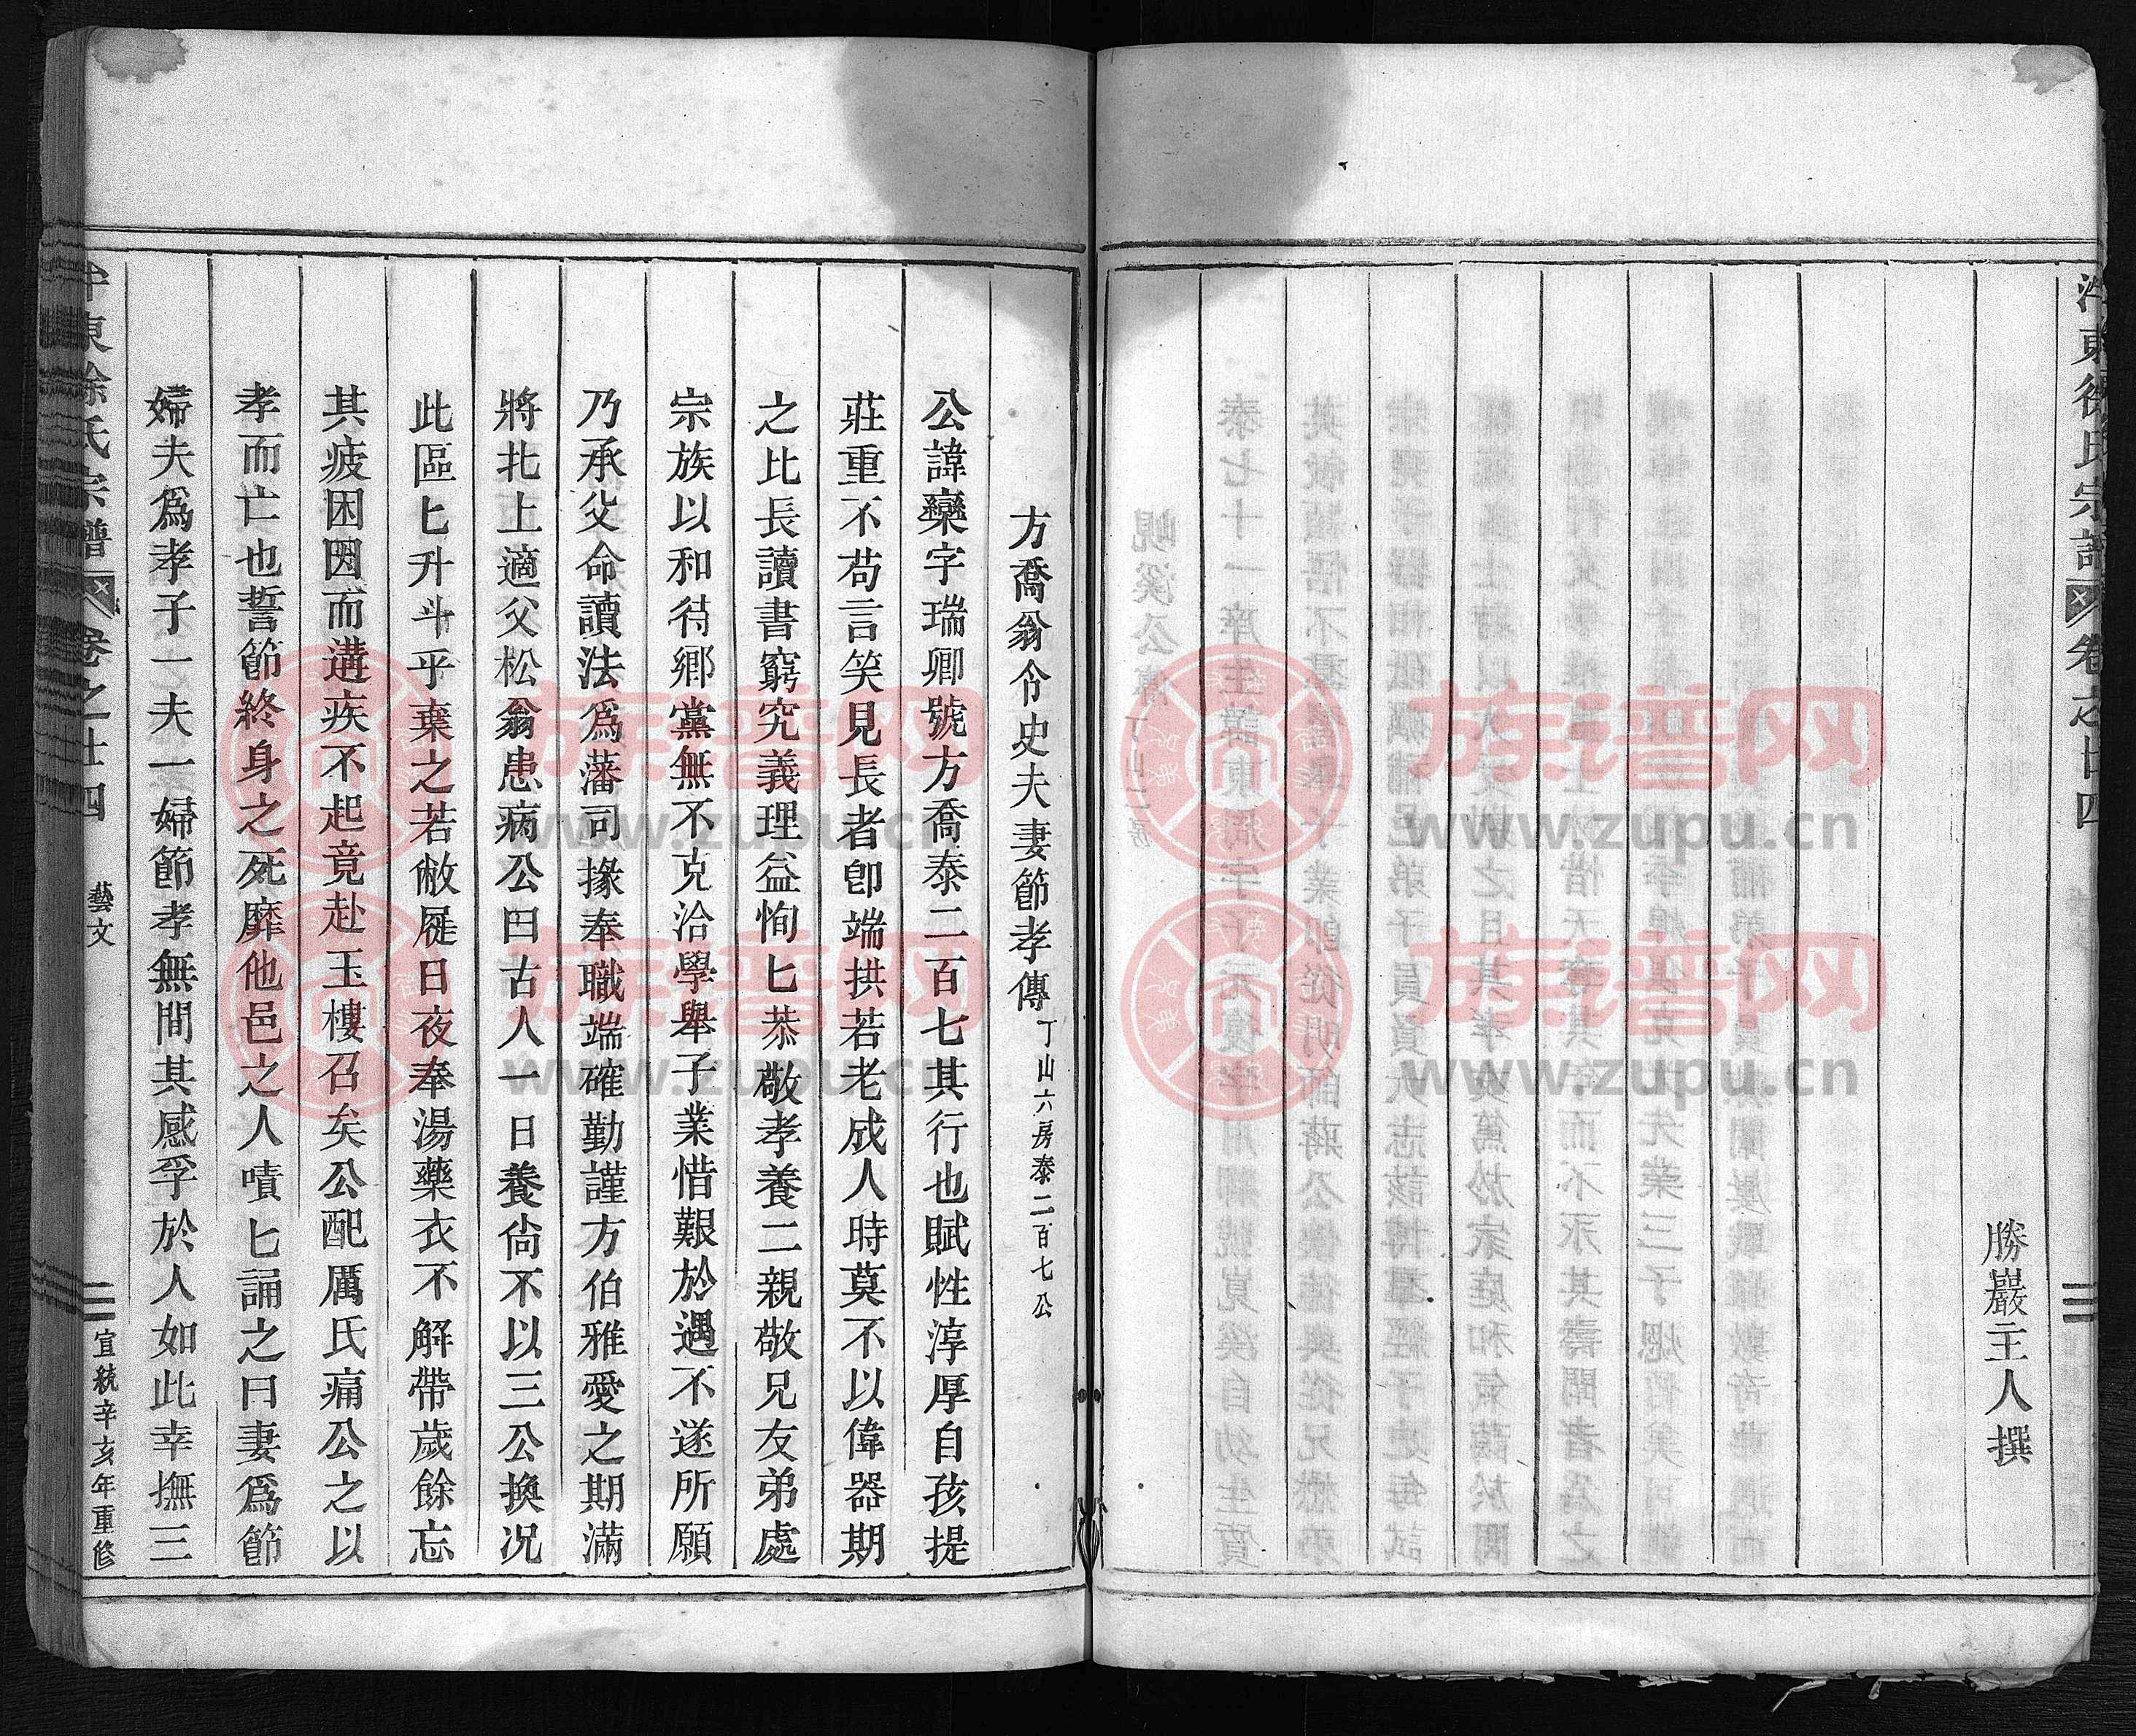 東徐氏宗譜 卷之廿四
勝巖主人撰
方喬翁令史夫妻節孝傳 丁山六房泰二百七公
公諱欒字瑞卿號方喬泰二百七其行也賦性淳厚自孩提
莊重不苟言笑見長者卽端拱若老成人時莫不以偉器期
之比長讀書窮究義理益恂匕恭敬孝養二親敬兄友弟處
宗族以和待鄉黨無不克洽學舉子業惜艱於遇不遂所願
乃承父命讀法爲藩司掾奉職端確勤謹方伯雅愛之期滿
將北上適父松翁患病公曰古人一日養尙不以三公換况
此區匕升斗乎棄之若敝屣日夜奉湯藥衣不解帶歲餘忘
其疲困因而遘疾不起竟赴玉樓召矣公配厲氏痛公之以
孝而亡也誓節終身之死靡他邑之人嘖匕誦之曰妻爲節
婦夫爲孝子一夫一婦節孝無間其感孚於人如此幸撫三
東徐氏宗譜 卷之廿四 藝文 宣統辛亥年重修
族谱网
www.zupu.cn
族谱网
www.zupu.cn
族谱网
www.zupu.cn
族谱网
www.zupu.cn